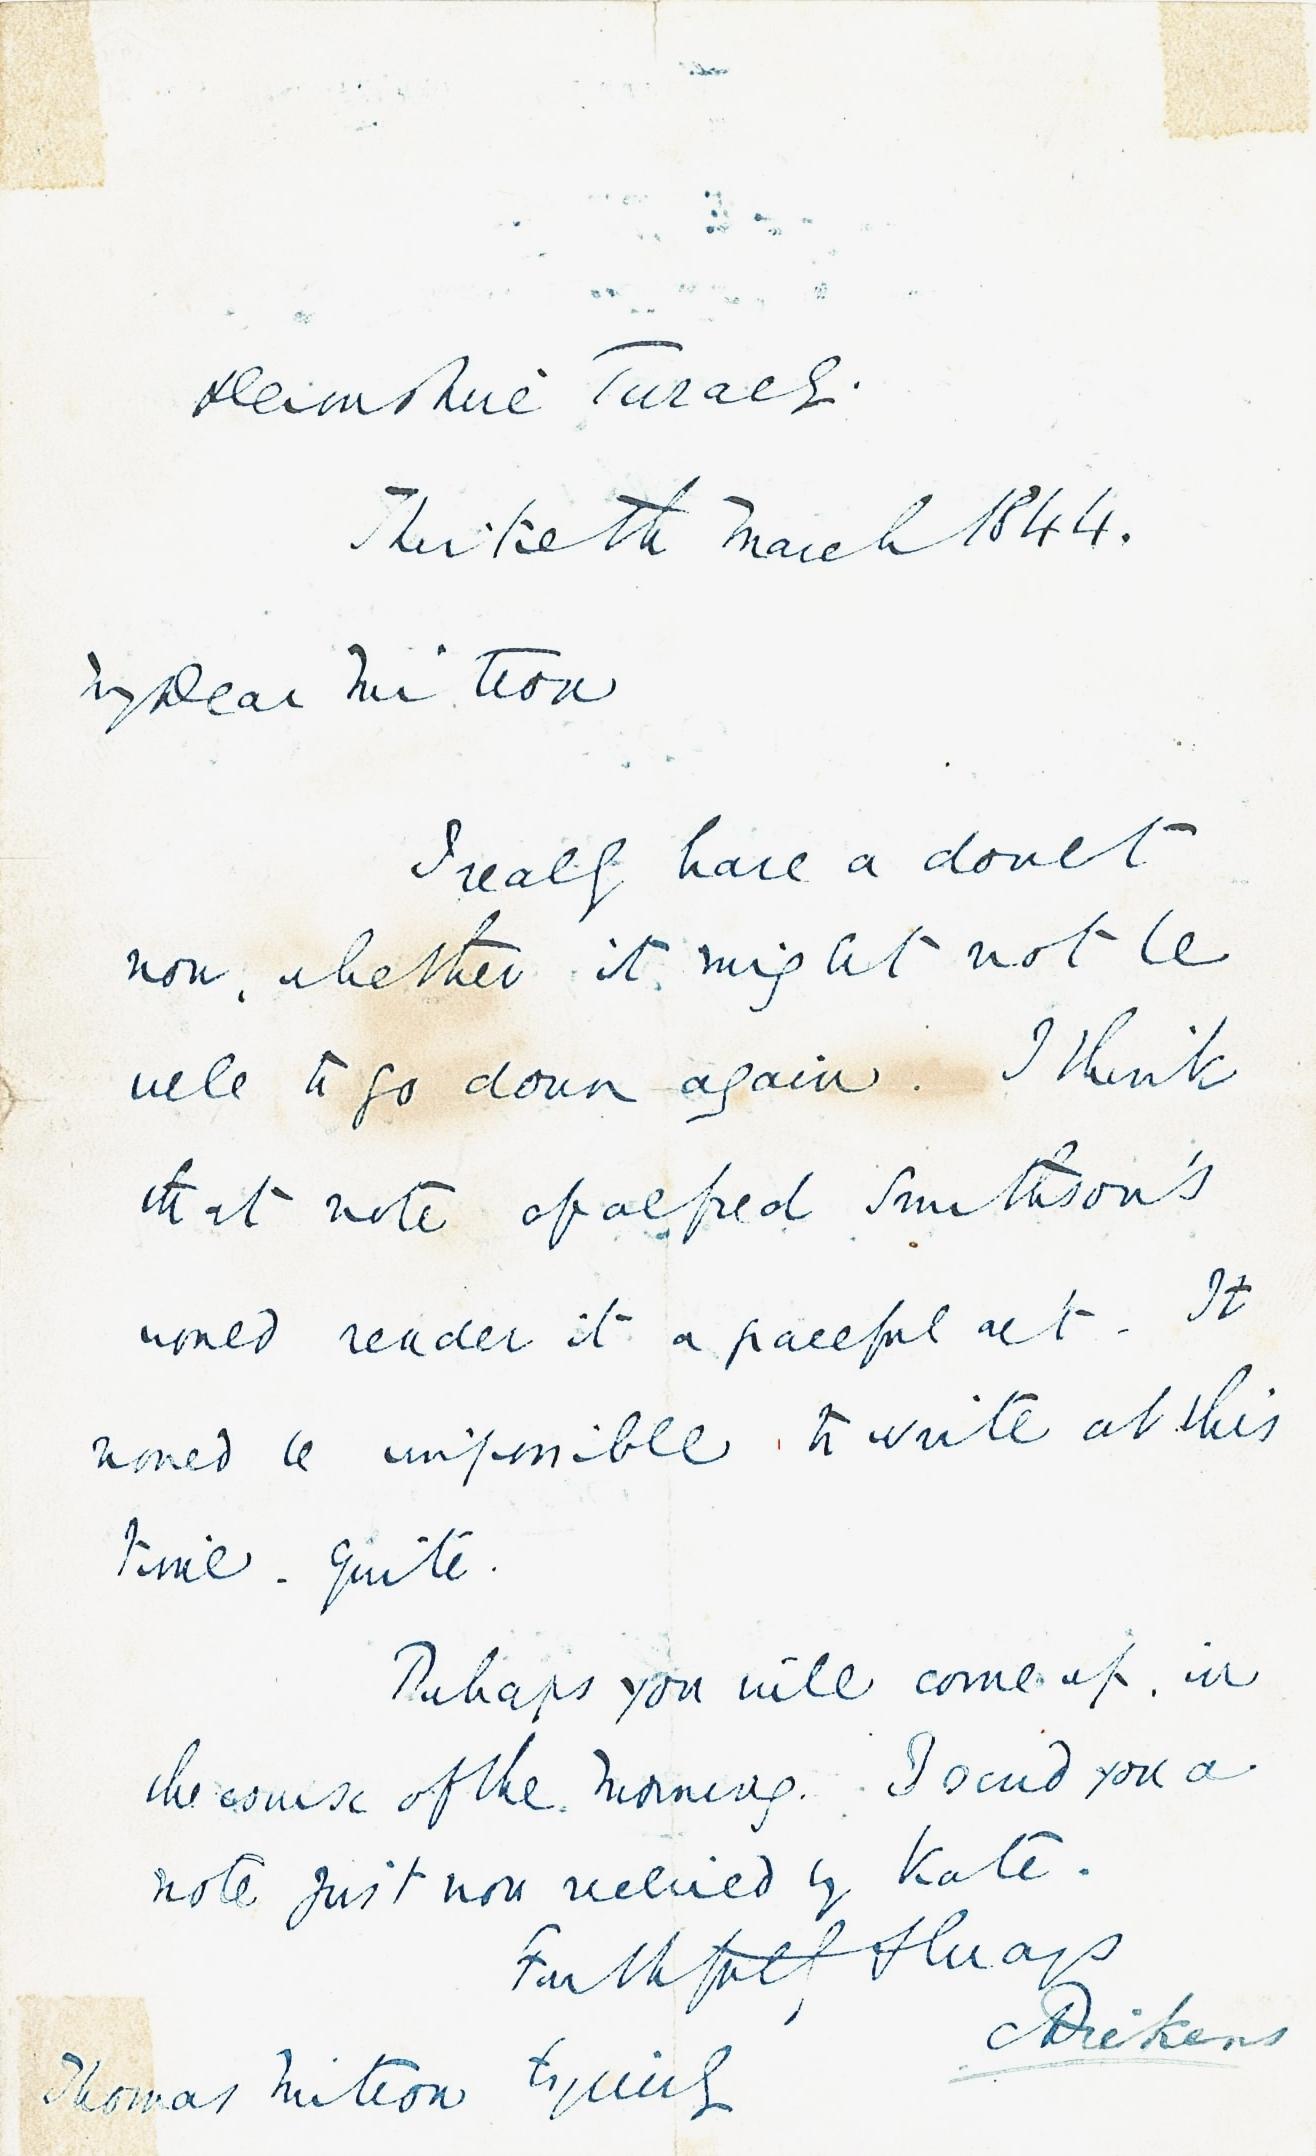 Devonshire Terrace.
Thirtieth March 1844.
My Dear Mitton
I really have a doubt
now, whether it might not be
well to go down again. I think
that note of Alfred Smithson's
would render it a graceful act. It
would be impossible to write at this
time - quite.
Perhaps you will come up, in
the course of the morning. I send you a
note just now received by Kate.
Faithfully Always
CDickens
Thomas Mitton Esquire